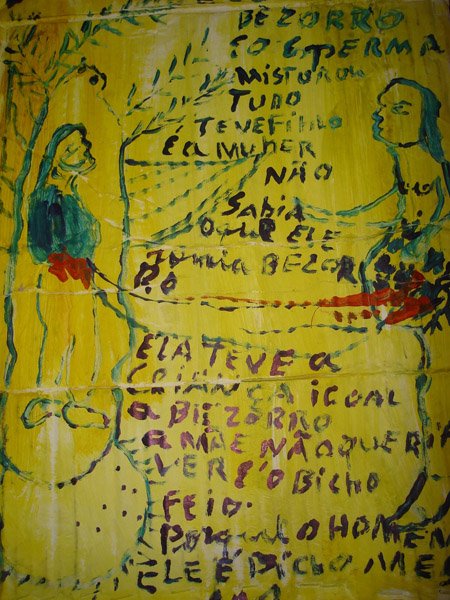 BEZORRO
CO ESPERMA
MISTUROU
TUDO
TEVE FILHO
É A MULHER
NÃO
SABIA
O QUE ELE
JUMIA BEZOR
RO
ELA TEVE A
CRIANÇA IGOAL
A BEZORRO
A MÃE NÃO QUERIA
VER É O BICHO
FEIO.
PORQUAL O HOMEM
ELE É BICHO MEC